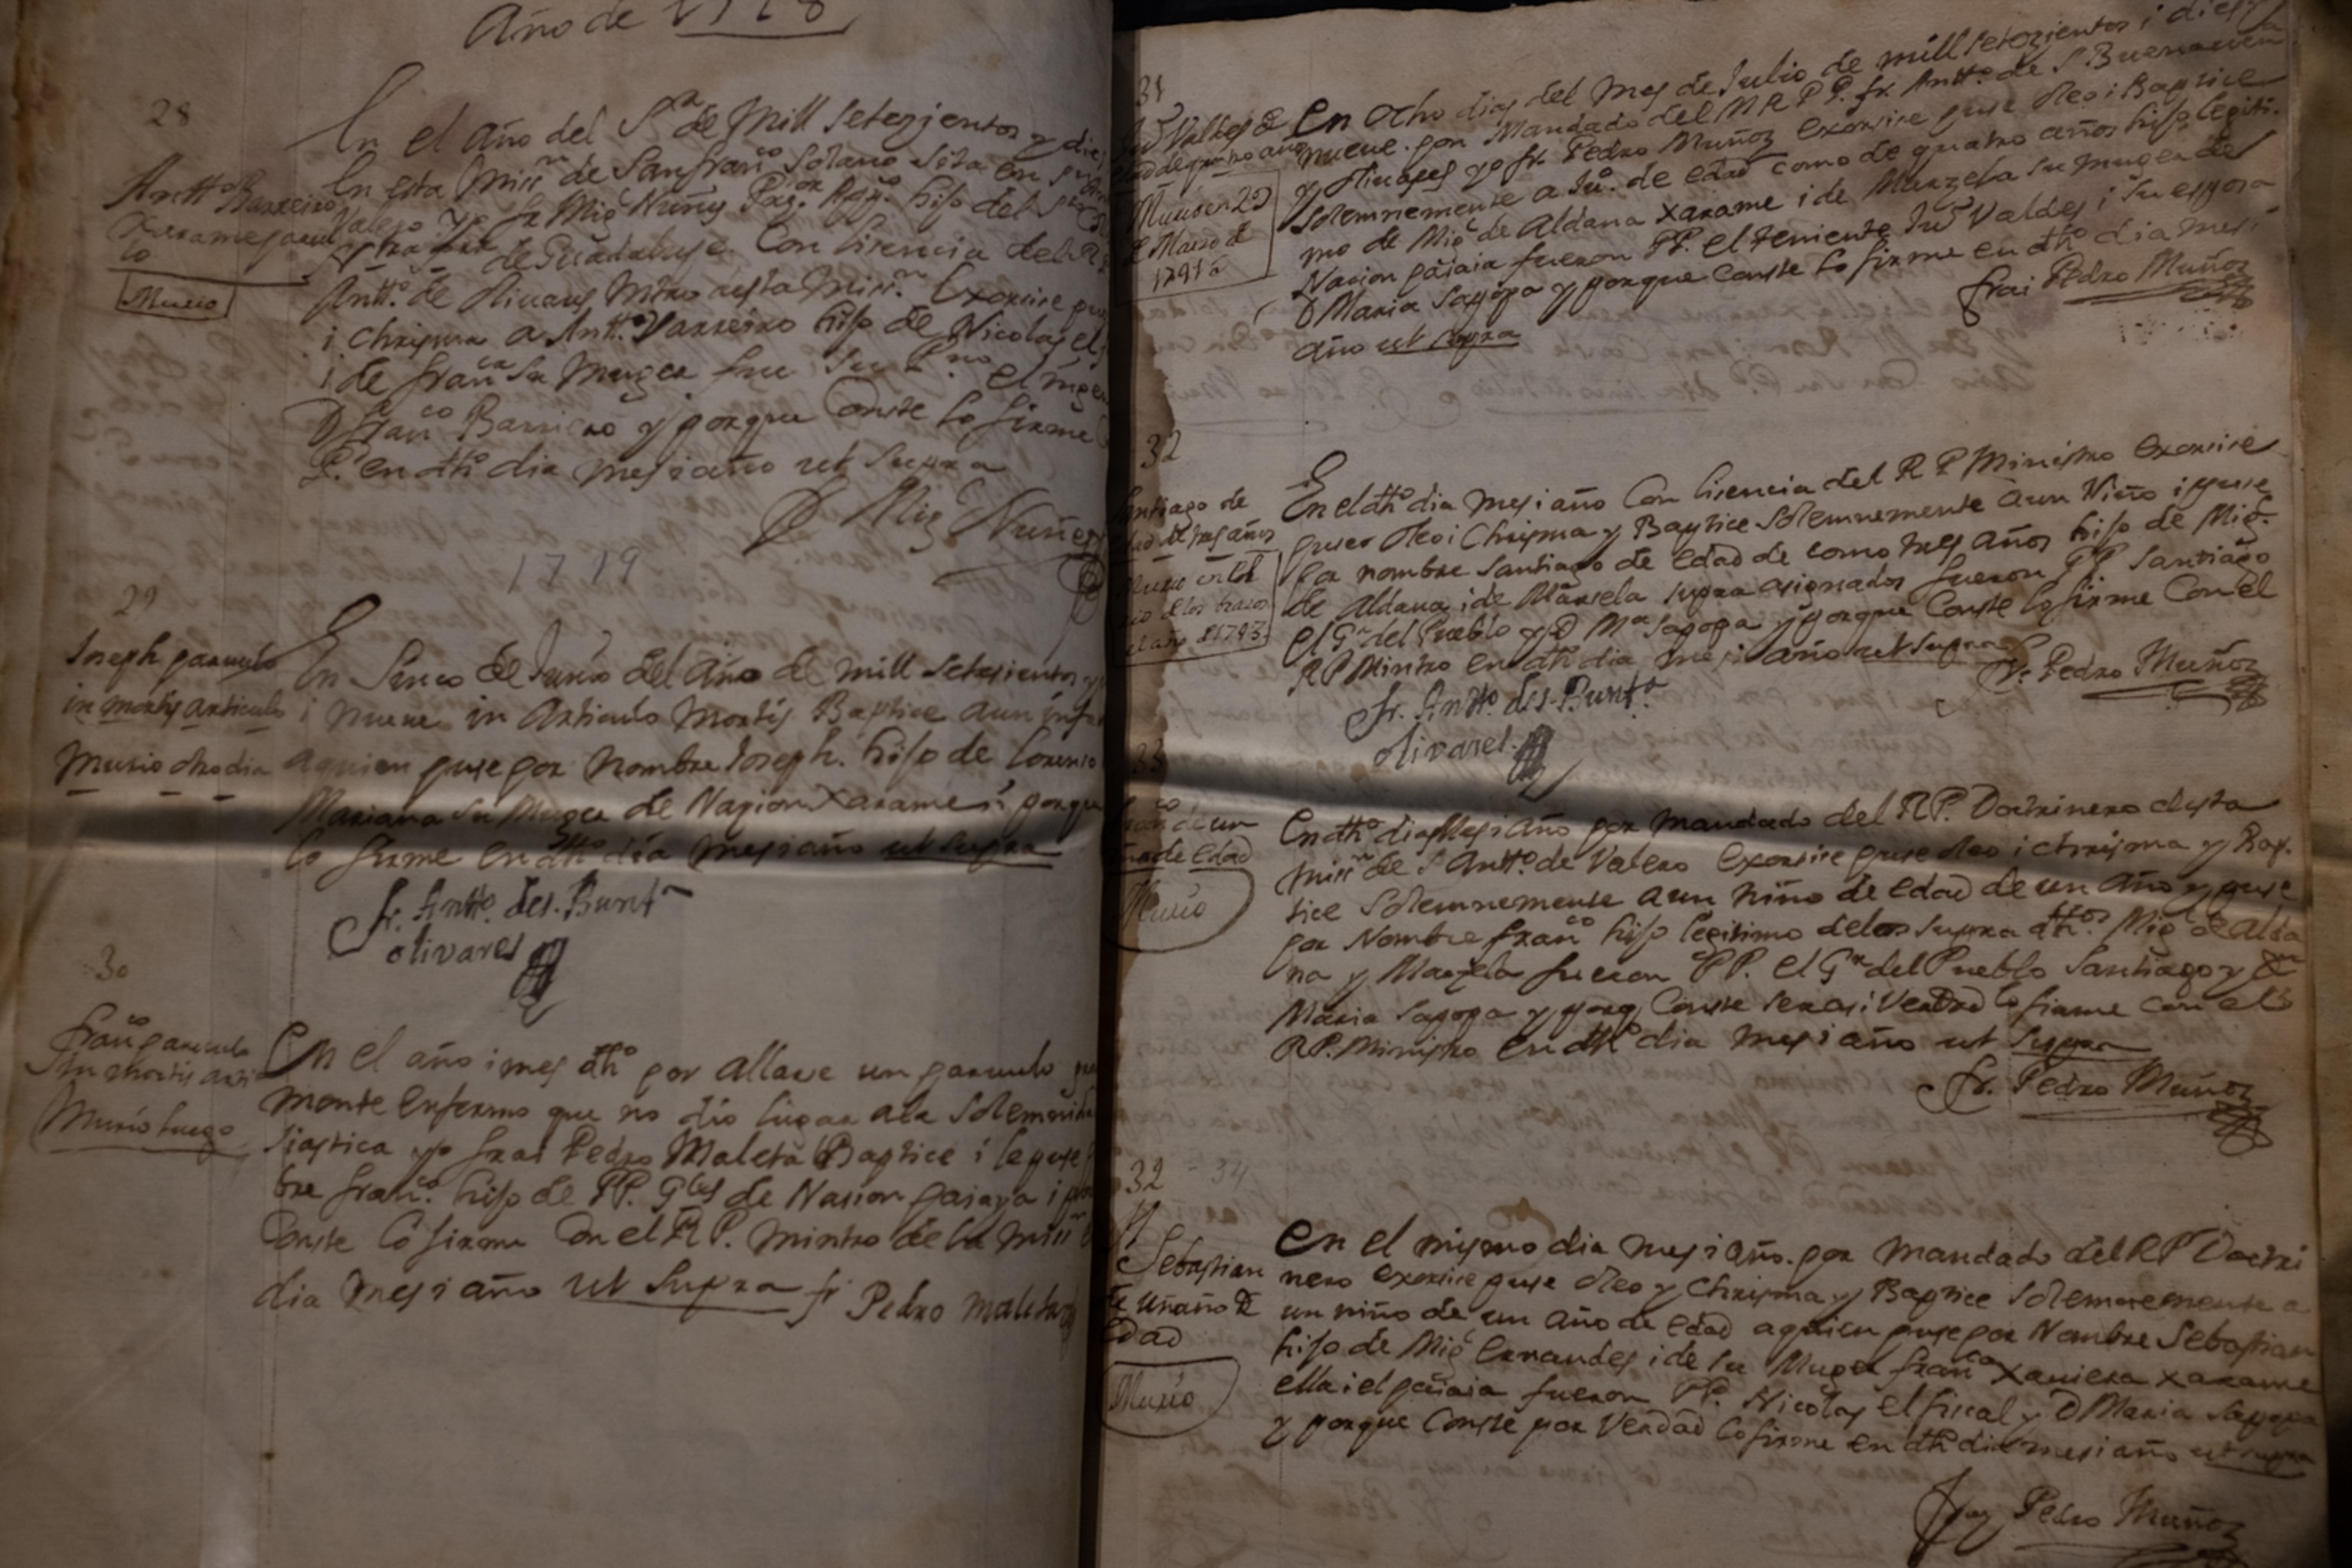 Año de 1718
28
Antt.o Barreiro
Xarame parvu
lo
Murio
En el año del Sr de Mill Setezientos y die
En esta Miss.n de San fran.co Solano Sita en
Valero yo fr Mig.l Nuñes Pre.or Appco. hijo del
de Guadalupe. Con lisencia del R
Antt.o de Olivares Mntro desta Miss.n Exorsise pu
i Chrisma a Antt.o Varreiro hijo de Nicolas el
i de fran.ca Su Muger fue Su P.no el inge
D fran.co Barreiro y porque Conste lo firme
P. en dho dia mes i año ut Supra
fr Mig.l Nuñes
1719
29
Joseph parvulo
in mortis articulo
Murio otro dia
En Sinco de Junio del año de mill Setesientos y
i nueve in articulo Mortis Baptice a un infa
a quien puse por nombre Joseph. hijo de Lorenso
Mariana Su Muger de Nazion Xarame i porque
lo firme en dho dia mes i año ut Supra
fr. Antto. de S. Buent.a
olivares
30
fran.co parvulo
In mortis arti
Murio luego
En el año i mes dho por allarse un parvulo
mente enfermo que no dio lugar a la Solemnida
siastica yo frai Pedro Maleta Baptice i le puse
bre fran.co hijo de PP. G.les de Nasion paiaya i por
Conste lo firme Con el R P. mintro de la miss.n
dia mes i año ut Supra fr Pedro maleta
31
Ju.o Valdes E
dad de quatro años
Murio en 29
de Marzo de
1741
En Ocho dias del mes de Julio de mill setezientos i dies y
nueve. por Mandado del M R P P. fr. Antt.o de S Buenaven
y Olivares yo fr. Pedro Muñoz exorsise puse oleo i Baptice
Solemnemente a Ju.o de edad como de quatro años hijo legiti
mo de Mig.l de Aldana xarame i de Marzela Su muger de
Nacion paiaia fueron PP. el teniente Ju.o Valdes i Su esposa
D Maria Sapopa y porque conste lo firme en dho dia mes i
año ut supra
frai Pedro Muñoz
32
Santiago de
edad de tres años
Murio en el
rio de los brasos
el año de 1743
En el dho dia mes i año Con lisencia del R P Ministro exorsise
puse oleo i Chrisma y Baptice Solemnemente a un Niño i puse
por nombre Santiago de edad de como tres años hijo de Mig.l
de Aldana i de Marsela supra asignados fueron PP Santiago
el G.r del Pueblo y D M.a Sapopa y porque Conste lo firme Con el
R P Mintro en dho dia mes i año ut supra
fr. Pedro Muñoz
fr. Antto. de S. Buent.a
olivares
33
fran.co de un
año de edad
Murio
En dho dia Mes i año por mandado del R P. Doctrinero desta
miss.n de S Antt.o de Valero exorsise puse oleo i chrisma y Bap
tice Solemnemente a un niño de edad de un año y puse
por Nombre fran.co hijo legitimo de los supra dhos. Mig.l de Alda
na y Marzela fueron PP. el G.r del Pueblo Santiago y D
Maria Sapopa y porq Conste ser asi Verdad lo firme con el
R P. Ministro en dho dia mes i año ut Supra
fr. Pedro Muñoz
32 - 34
Sebastian
de un año de
edad
Murio
En el mismo dia mes i año. por mandado del R P Doctri
nero exorsise puse oleo y Chrisma y Baptice Solemnemente a
un niño de un año de edad a quien puse por Nombre Sebastian
hijo de Mig.l Ernandes i de su Muger fran.ca Xaviera xarame
ella i el paiaia fueron PP. Nicolas el fiscal y D Maria Sapopa
y porque Conste por Verdad lo firme en dho dia mes i año ut supra
fray Pedro Muñoz